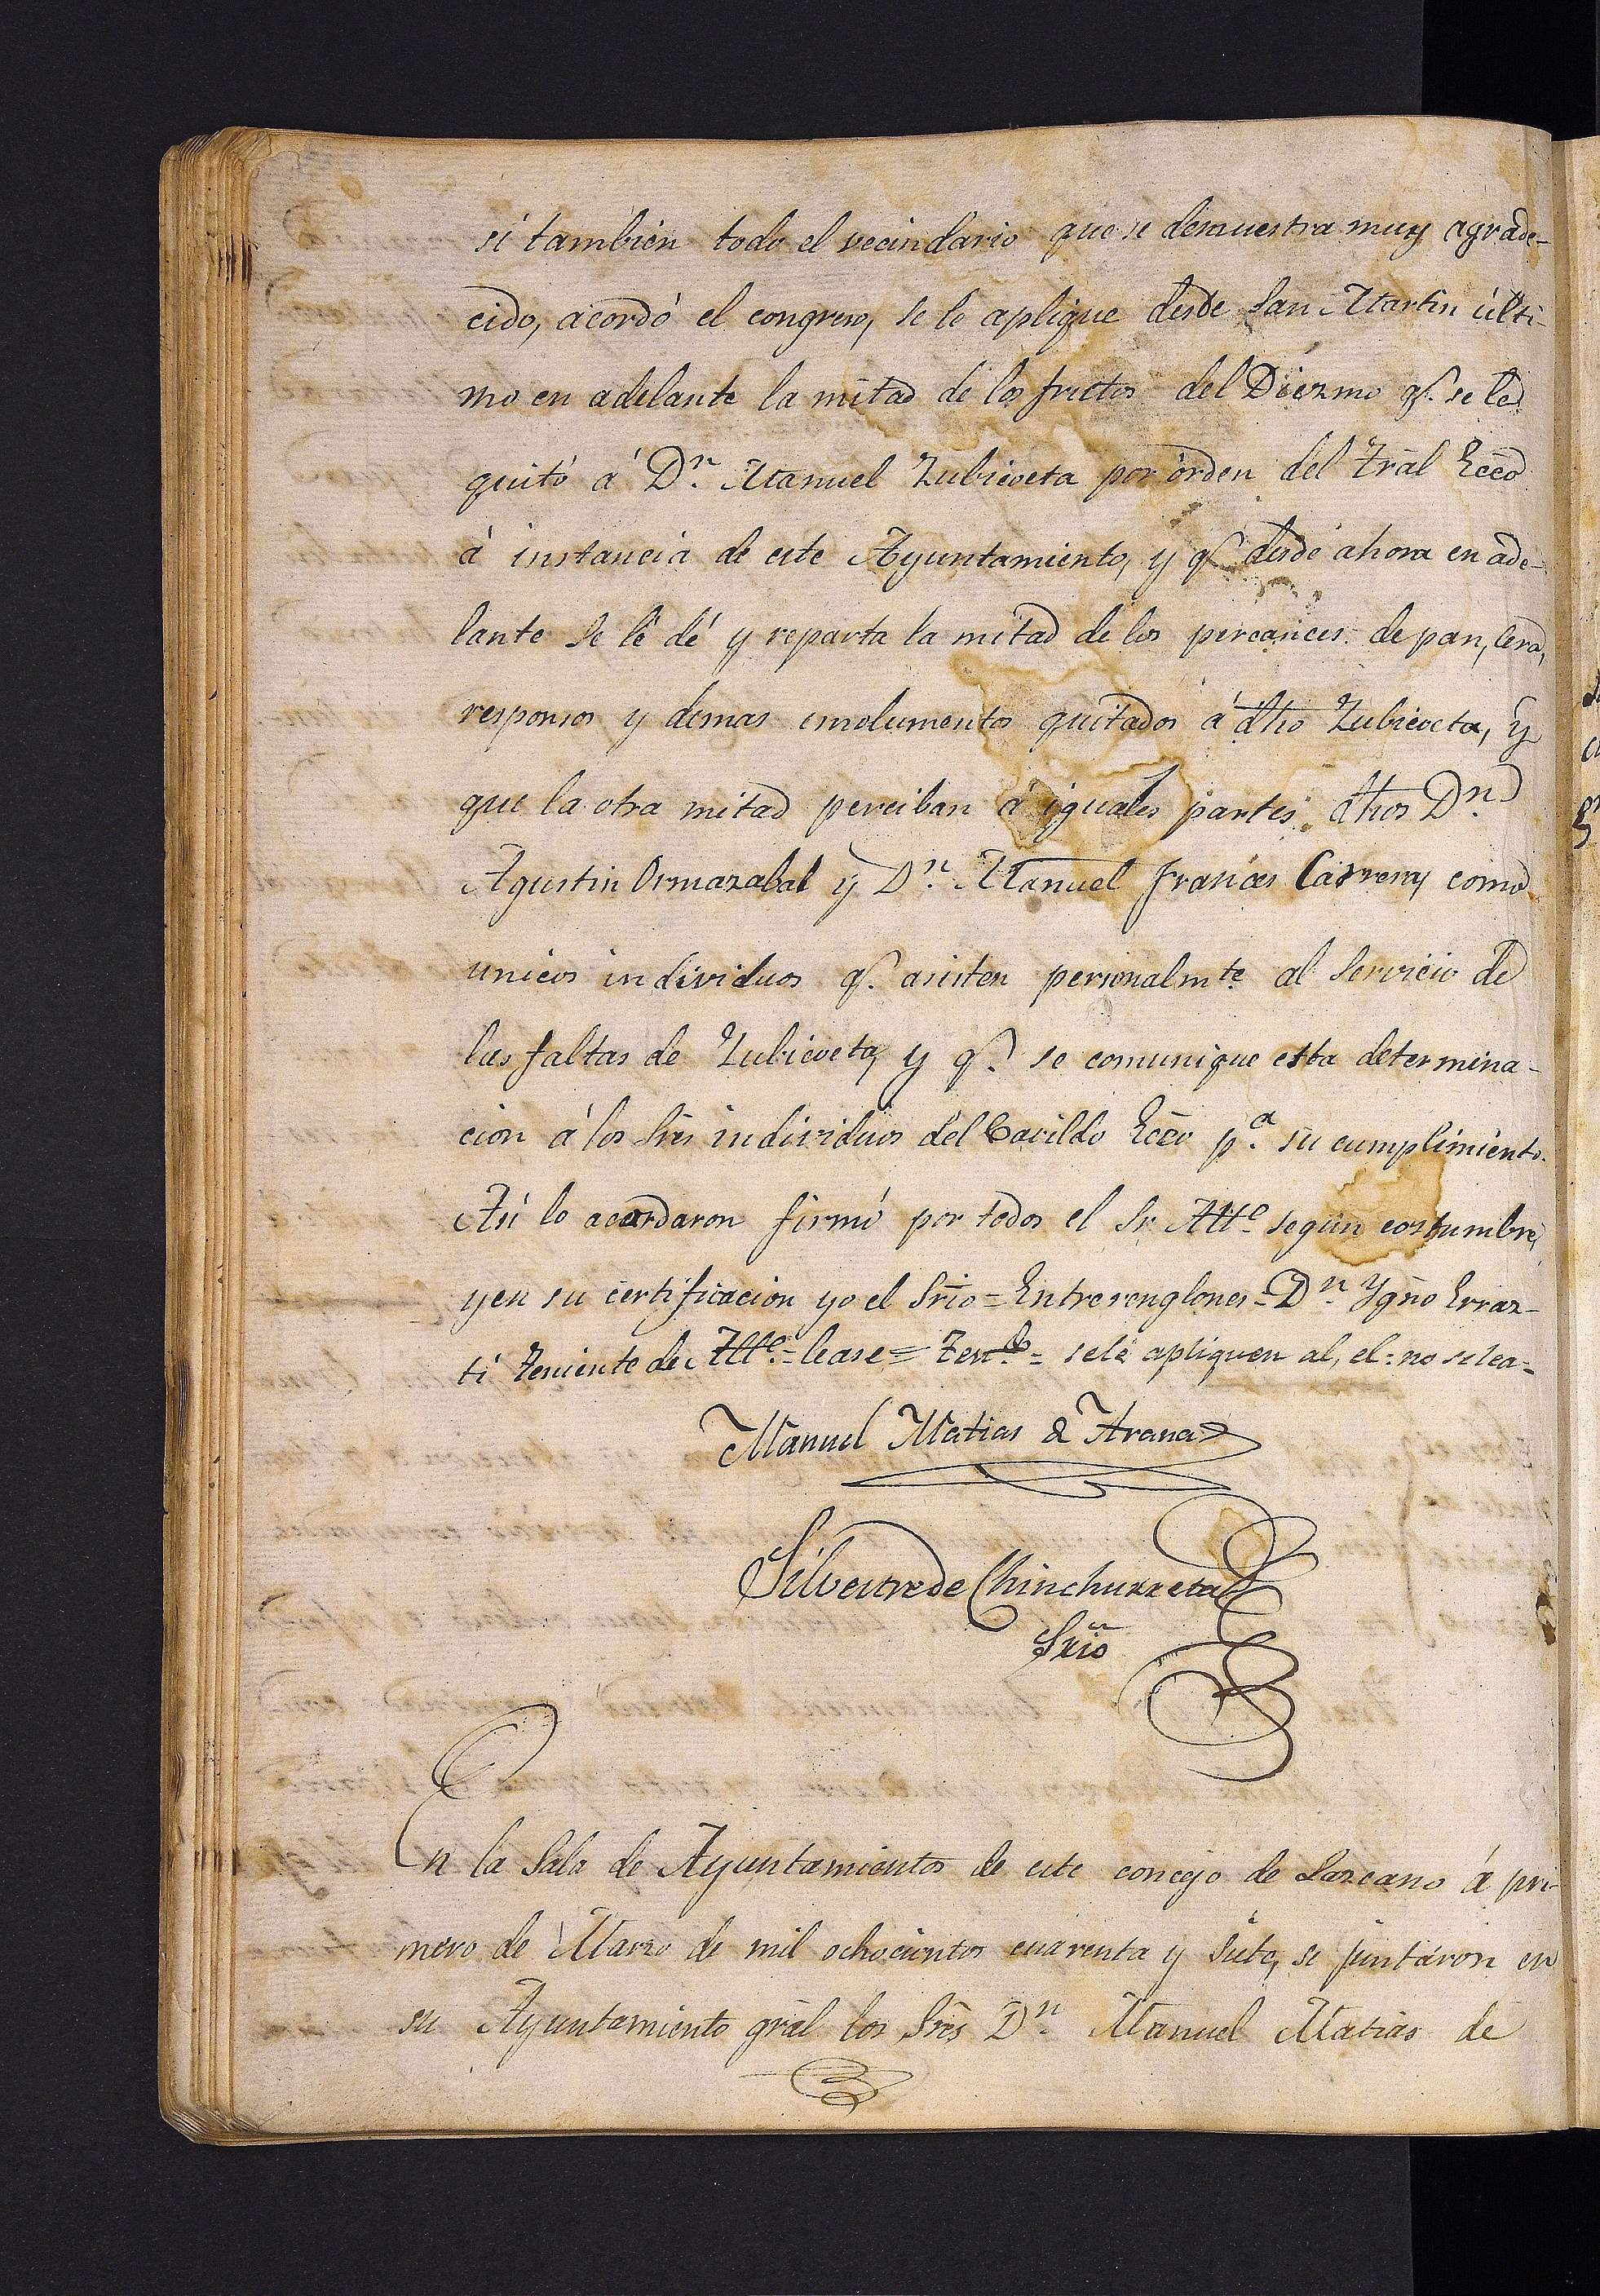 si tambien todo el vecindario que se demuestra muy agrade-
cido, acordó el congreso, se le aplique desde San Martin ulti-
mo en adelante la mitad de los fructos del Diezmo q.e se le
quitó á D.n Manuel Zubieveta por orden del Tral Ecco
á instancia de este Ayuntamiento, y q.e desde ahora en ade-
lante se le dé y reparta la mitad de los percances de pan, cera,
responsos y demas emolumentos quitados á dho Zubieveta, y
que la otra mitad perciban á iguales partes dhos D.n
Agustin Ormazabal y D.n Manuel Frances Carrera, como
unicos individuos q.e asisten personalmte. al servicio de
las faltas de Zubieveta, y q.e se comunique esta determina-
cion á los Sres individuos del Cavildo Ecco p.a su cumplimiento.
Asi lo acordaron firmó por todos el Sr. Alle según costumbre,
y en su certificacion yo el Srio = Entrerenglones = D.n Ygno Erraz-
ti Teniente de Alle. = lease = Ten.te = se le apliquen al, el = no se lea =
Manuel Matias de Arana
Silvestre de Chinchurreta
Srio
En la Sala de Ayuntamientos de este concejo de Lazcano á pri-
mero de Marzo de mil ochocientos cuarenta y siete, se juntaron en
su Ayuntamiento gral los Sres D.n Manuel Matias de